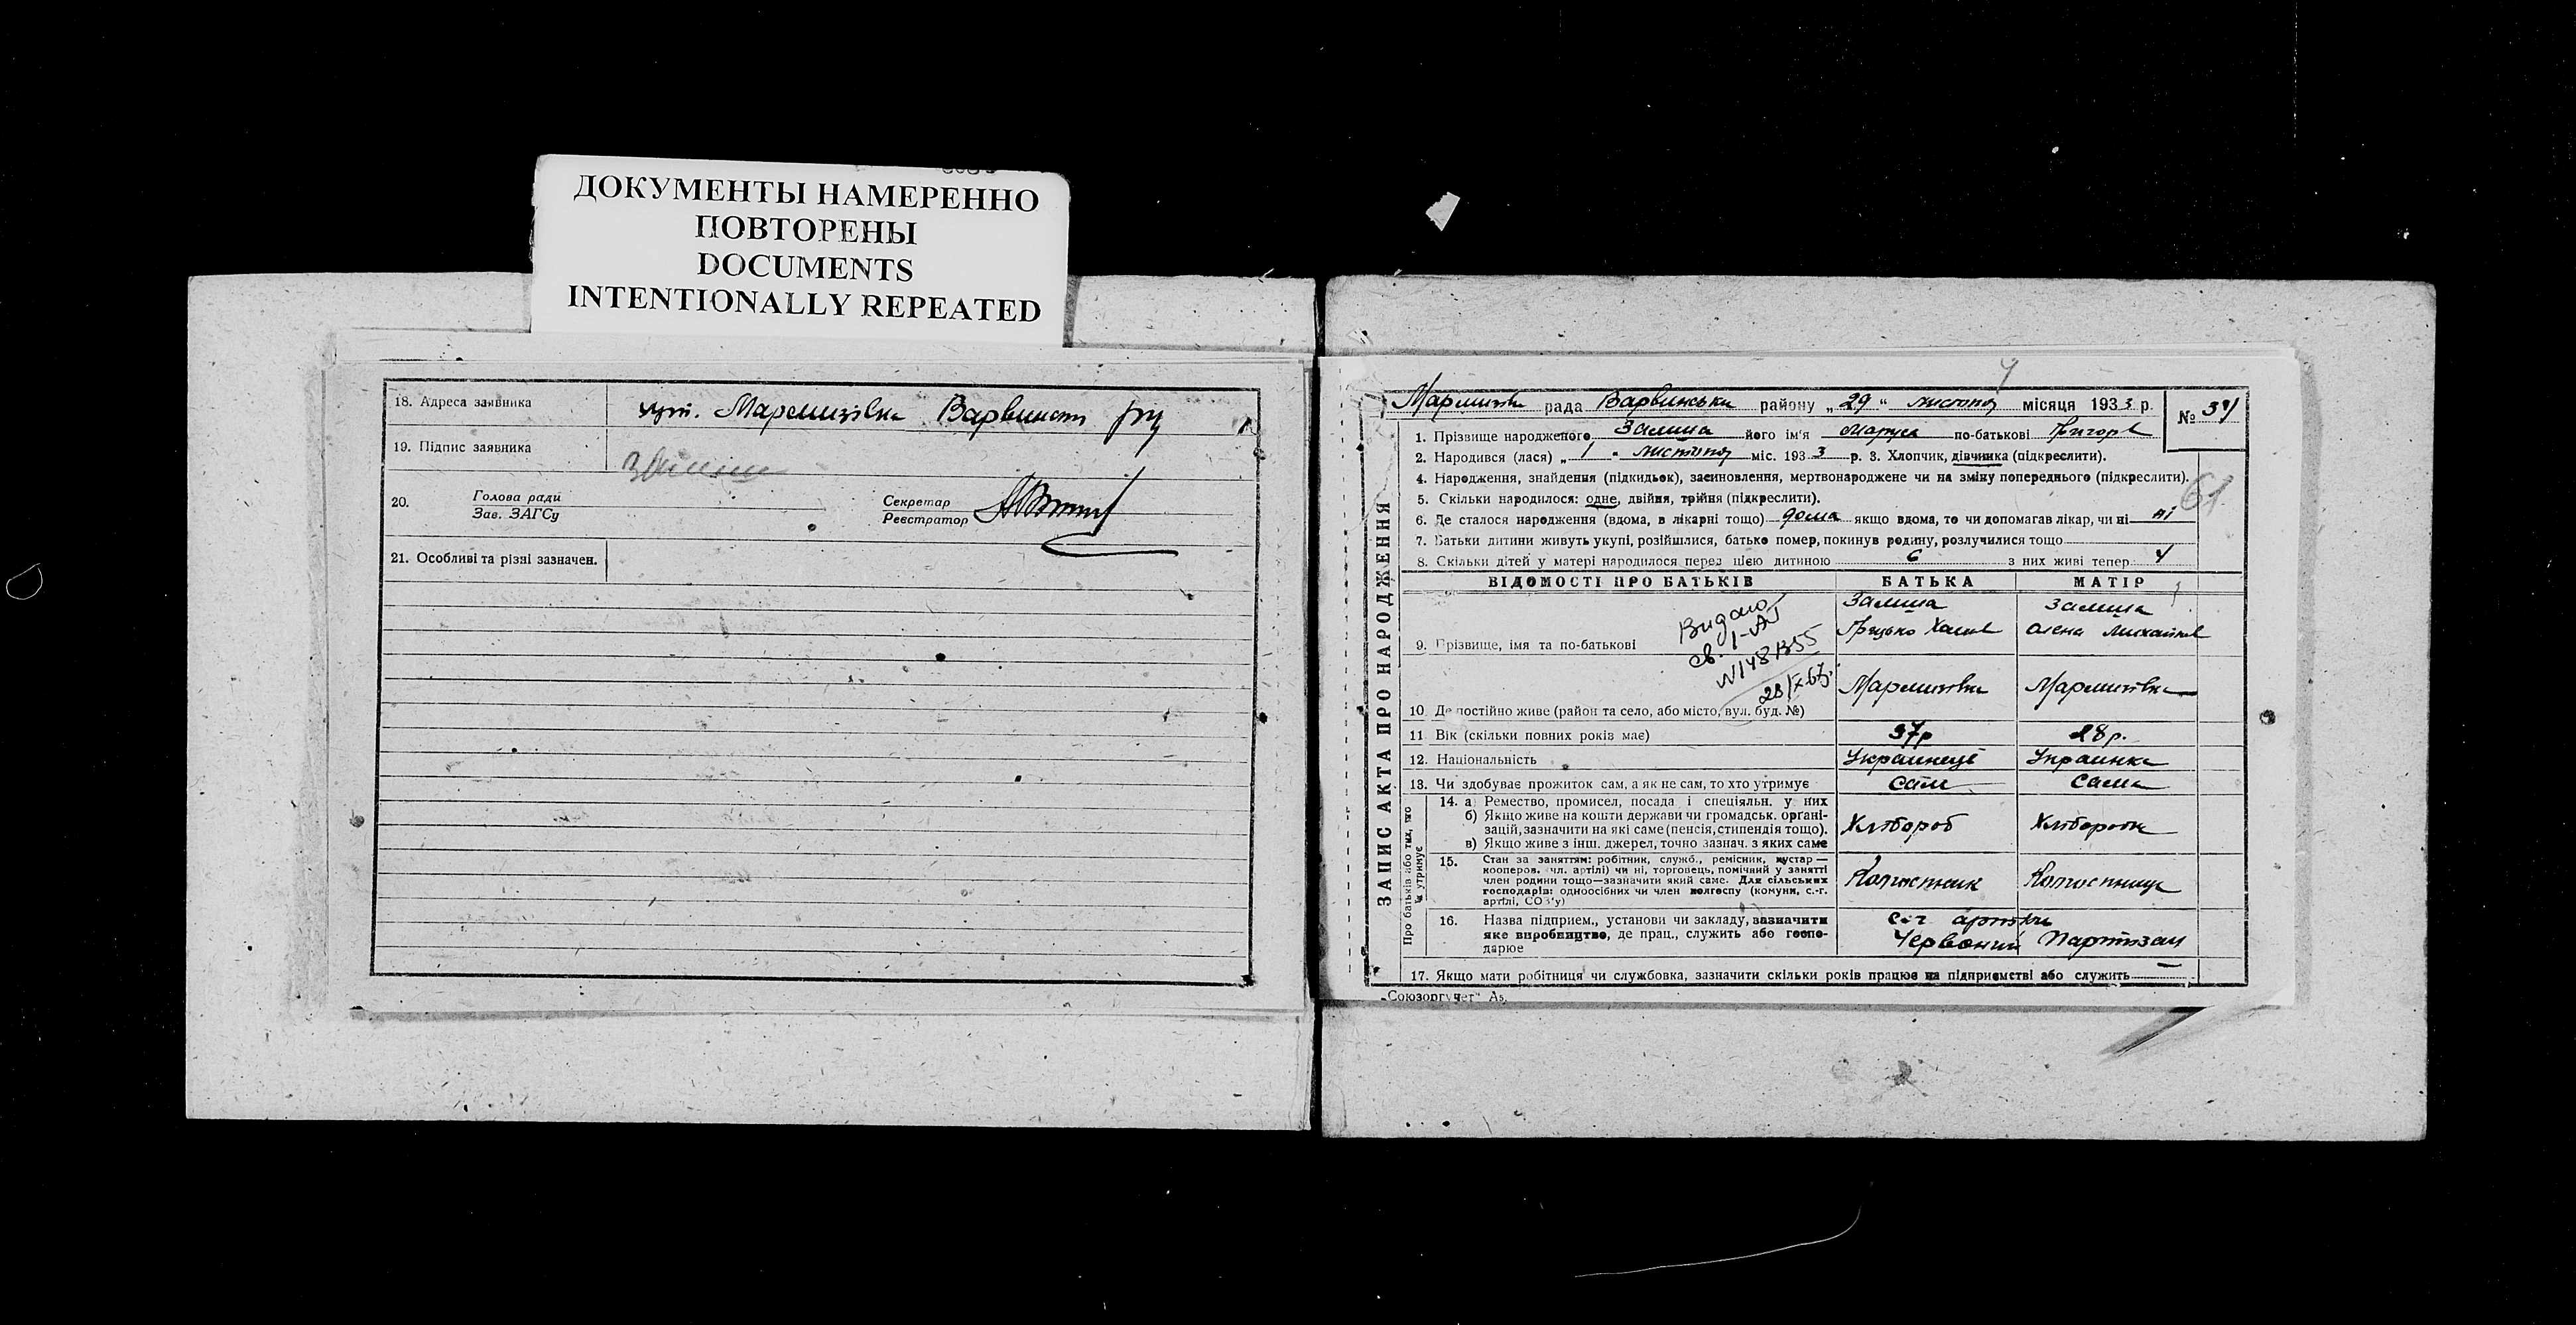 ДОКУМЕНТЫ НАМЕРЕННО
ПОВТОРЕНЫ
DOCUMENTS
INTENTIONALLY REPEATED
18. Адреса заявника хут. Мармизівка Варвинськ
19. Підпис заявника
20. Голова ради
Зав. ЗАГСу
Секретар
Реєстратор
21. Особливі та різні зазначен.
ЗАПИС АКТА ПРО НАРОДЖЕННЯ
Мармизівка рада Варвинська району „29“ листопад місяця 1933 р.
№
1. Прізвище народженого Залиша його ім'я Маруся по-батькові Григор
2. Народився (лася) „1“ листопад міс. 1933 р. 3. Хлопчик, дівчинка (підкреслити).
4. Народження, знайдення (підкидьок), засиновлення, мертвонароджене чи на зміну попереднього (підкреслити).
61
5. Скільки народилося: одне, двійня, трійня (підкреслити).
6. Де сталося народження (вдома, в лікарні тощо) дома якщо вдома, то чи допомагав лікар, чи ні ні
7. Батьки дитини живуть укупі, розійшлися, батько помер, покинув родину, розлучилися тощо
8. Скільки дітей у матері народилося перед цією дитиною 6 з них живі тепер 4
ВІДОМОСТІ ПРО БАТЬКІВ БАТЬКА МАТІР
9. Прізвище, імя та по-батькові
Видано
св. I-АЮ
28/X-67г.
Залиша
Грицько
Залиша
Олена Михайлов
10. Де постійно живе (район та село, або місто, вул. буд. №) Мармизівка Мармизівка
11. Вік (скільки повних років має) 37р 28р.
12. Національність Украинець Украинка
13. Чи здобуває прожиток сам, а як не сам, то хто утримує Сам Сама
Про батьків або тих, хто їх утримує
14. а) Ремество, промисел, посада і спеціяльн. у них
б) Якщо живе на кошти держави чи громадськ. органі-
зацій, зазначити на які саме (пенсія, стипендія тощо).
в) Якщо живе з інш. джерел, точно зазнач. з яких саме
Хлібороб Хліборобка
15. Стан за заняттям: робітник, служб., ремісник, кустар—
кооперов. (чл. артілі) чи ні, торговець, помічний у занятті
член родини тощо—зазначити який саме. Для сільських
господарів: одноосібних чи член колгоспу (комуни, с.-г.
артілі, СОЗ'у)
Колгоспник Колгоспниця
16. Назва підприєм., установи чи закладу, зазначити
яке виробництво, де прац., служить або госпо-
дарює
с-г
Червоний Партизан
17. Якщо мати робітниця чи службовка, зазначити скільки років працює на підприємстві або служить —
„Союзоргучет“